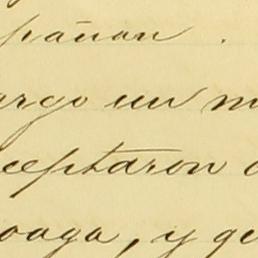 pañan.
argo un m
ceptaron
oaga, y ge